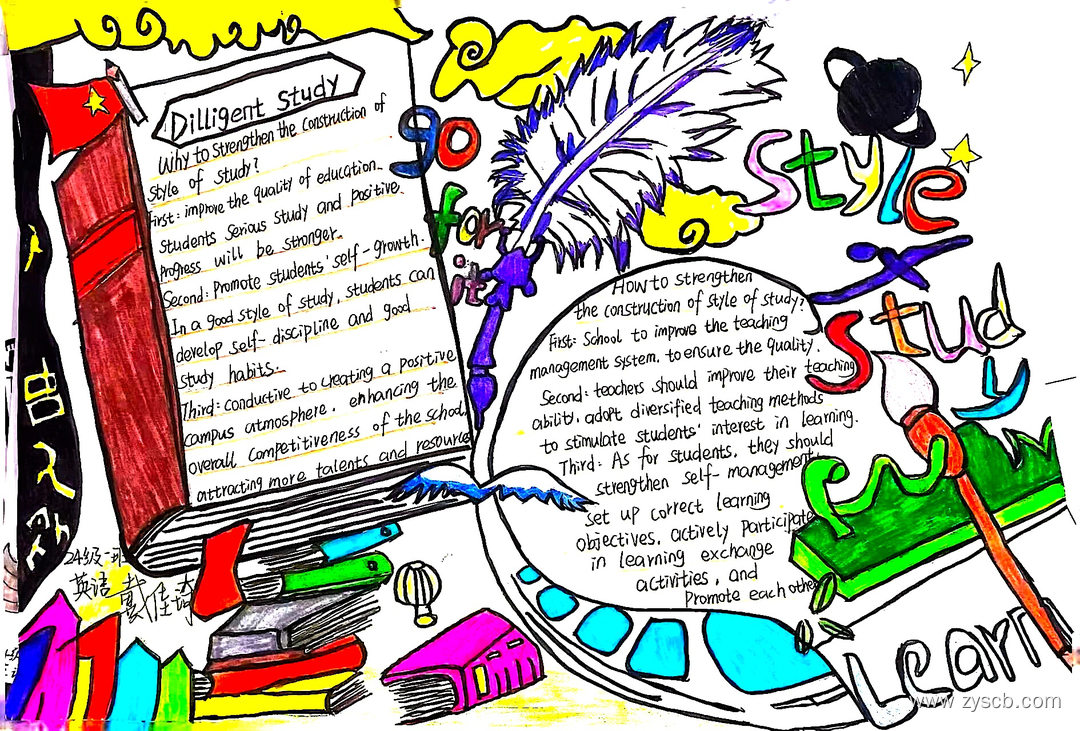 Dilligent Study
Why to strengthen the construction of
style of study?
First: improve the quality of education.
students serious study and positive.
progress will be stronger.
Second: Promote students' self-growth.
In a good style of study, students can
develop self-discipline and good
study habits.
Third: conductive to creating a positive
campus atmosphere, enhancing the
overall competitiveness of the school,
attracting more talents and resource
go
for
it
style
study
How to strengthen
the construction of style of study?
First: School to improve the teaching
management system, to ensure the quality.
Second: teachers should improve their teaching
ability, adopt diversified teaching methods
to stimulate students' interest in learning.
Third: As for students, they should
strengthen self-management,
set up correct learning
objectives, actively participate
in learning exchange
activities, and
promote each other
Learn
24级一班
英语
www.zyscb.com